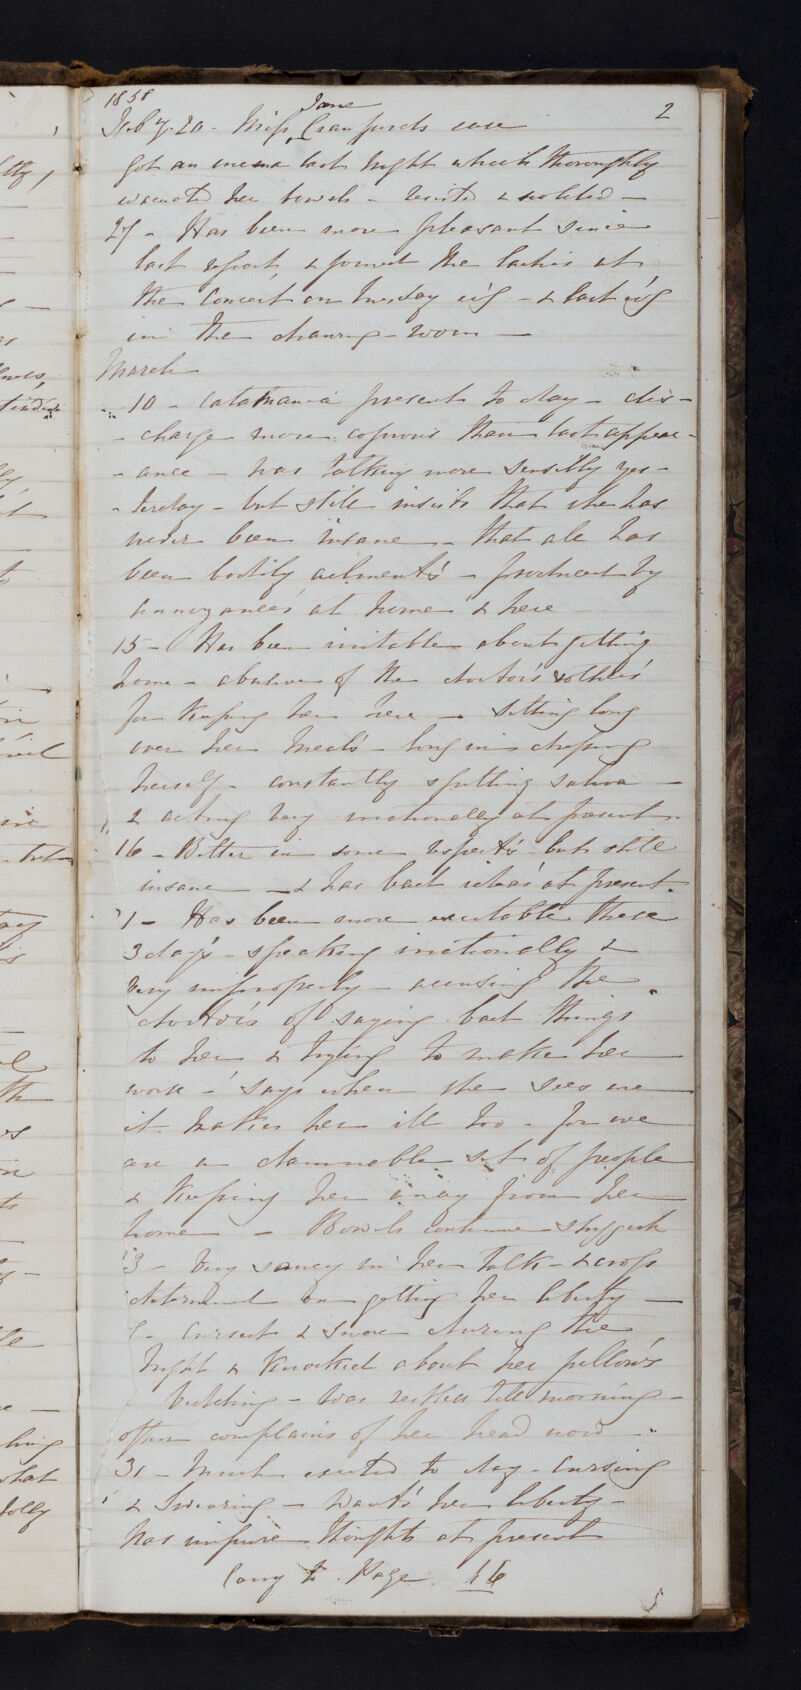 1858
2
Feby. 20 - Miss Jane Crawfurds case
got an enema last night which thoroughly
evacuated her bowels - resisted & scolded -
27 - Has been more pleasant since
last report, & joined the ladies at
the Concert on Tuesday ev'g - & last ev'g
in the drawing-room -
March
10 - Catamania present to day - dis-
- charge more copious than last appear-
- ance - was talking more sensibly yes-
- terday - but still insists that she has
never been insane - that all has
been bodily ailments - produced by
annoyances at home & here
15 - Has been irritable about getting
home - abusive of the doctors & others
for keeping her here - sitting long
over her meals - long in dressing
herself - constantly spitting saliva -
& acting very irrationally at present -
16 - Better in some respects but still
insane - & has bad ideas at present.
1 - Has been more excitable these
3 days - speaking irrationally &
very improperly - accusing the
doctors of saying bad things
to her & trying to make her
work - says when she sees me
it makes her ill too - for we
are a damnable set of people
& keeping her away from her
home - Bowels continue sluggish
3 - Very saucy in her talk - & cross
determined on getting her liberty -
- Cursed & swore during the
night & knocked about her pillows
bedding - was restless till morning -
often complains of her head now -
31 - Much excited to day - cursing
& swearing - wants her liberty -
has impure thoughts at present
Carry to Page 16